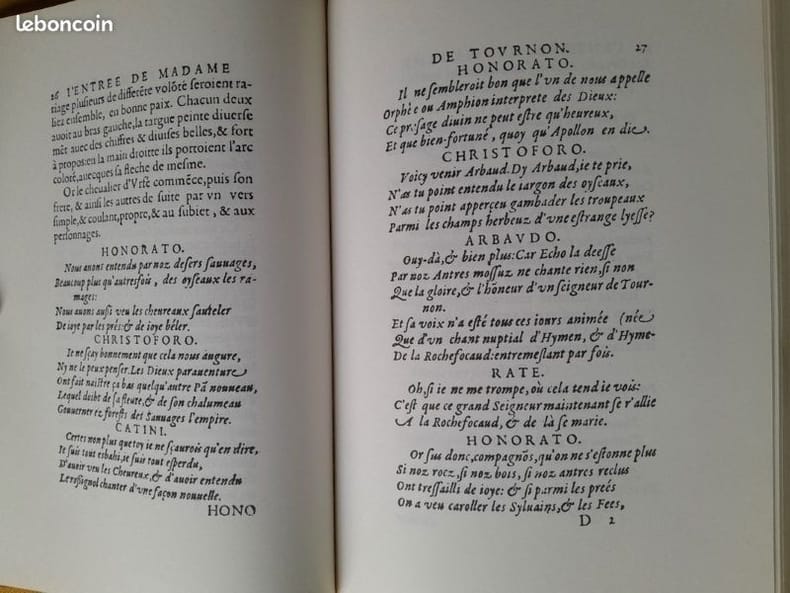 leboncoin
26 L'ENTREE DE MADAME
tiage plusieurs de differẽte volõté seroient ra-
liez ensemble, en bonne paix. Chacun deux
auoit au bras gauche, la targue peinte diuerse
mẽt auec des chiffres & diuises belles, & fort
à propos: en la main droitte ils portoient l'arc
coloré, auecques sa flesche de mesme.
Or le cheualier d'Vrfé commẽce, puis son
frere, & ainsi les autres de suite par vn vers
simple, & coulant, propre, & au subiet, & aux
personnages.
HONORATO.
Nous auons entendu par noz desers sauuages,
Beaucoup plus qu'autresfois, des oyseaux les ra-
mages:
Nous auons aussi veu les cheureaux sauteler
De ioye par les prés: & de ioye béler.
CHRISTOFORO.
Ie ne sçay bonnement que cela nous augure,
Ny ne le peux penser. Les Dieux parauenture
Ont fait naistre ça bas quelqu'autre Pã nouueau,
Lequel doibt de sa fleute, & de son chalumeau
Gouuerner ez forests des Sauuages l'empire.
CATINI.
Certes non plus que toy ie ne sçaurois qu'en dire,
Ie suis tout esbahi, ie suis tout esperdu,
D'auoir veu les Cheureux, & d'auoir entendu
Le rossignol chanter d'vne façon nouuelle.
HONO
DE TOVRNON. 27
HONORATO.
Il ne sembleroit bon que l'vn de nous appelle
Orphée ou Amphion interprete des Dieux:
Ce presage diuin ne peut estre qu'heureux,
Et que bien-fortuné, quoy qu'Apollon en die.
CHRISTOFORO.
Voicy venir Arbaud. Dy Arbaud, ie te prie,
N'as tu point entendu le iargon des oyseaux,
N'as tu point apperçeu gambader les troupeaux
Parmi les champs herbeuz d'vne estrange lyesse?
ARBAVDO.
Ouy-dà, & bien plus: Car Echo la deesse
Par noz Antres mossuz ne chante rien, si non
Que la gloire, & l'hõneur d'vn seigneur de Tour-
non.
Et sa voix n'a esté tous ces iours animée (née
Que d'vn chant nuptial d'Hymen, & d'Hyme-
De la Rochefocaud: entremeslant par fois.
RATE.
Oh, si ie ne me trompe, où cela tend ie vois:
C'est que ce grand Seigneur maintenant se r'allie
A la Rochefocaud, & de là se marie.
HONORATO.
Or sus donc, compagnõs, qu'on ne s'estonne plus
Si noz rocz, si noz bois, si noz antres reclus
Ont tressailli de ioye: & si parmi les preés
On a veu caroller les Syluains, & les Fees,
D 2